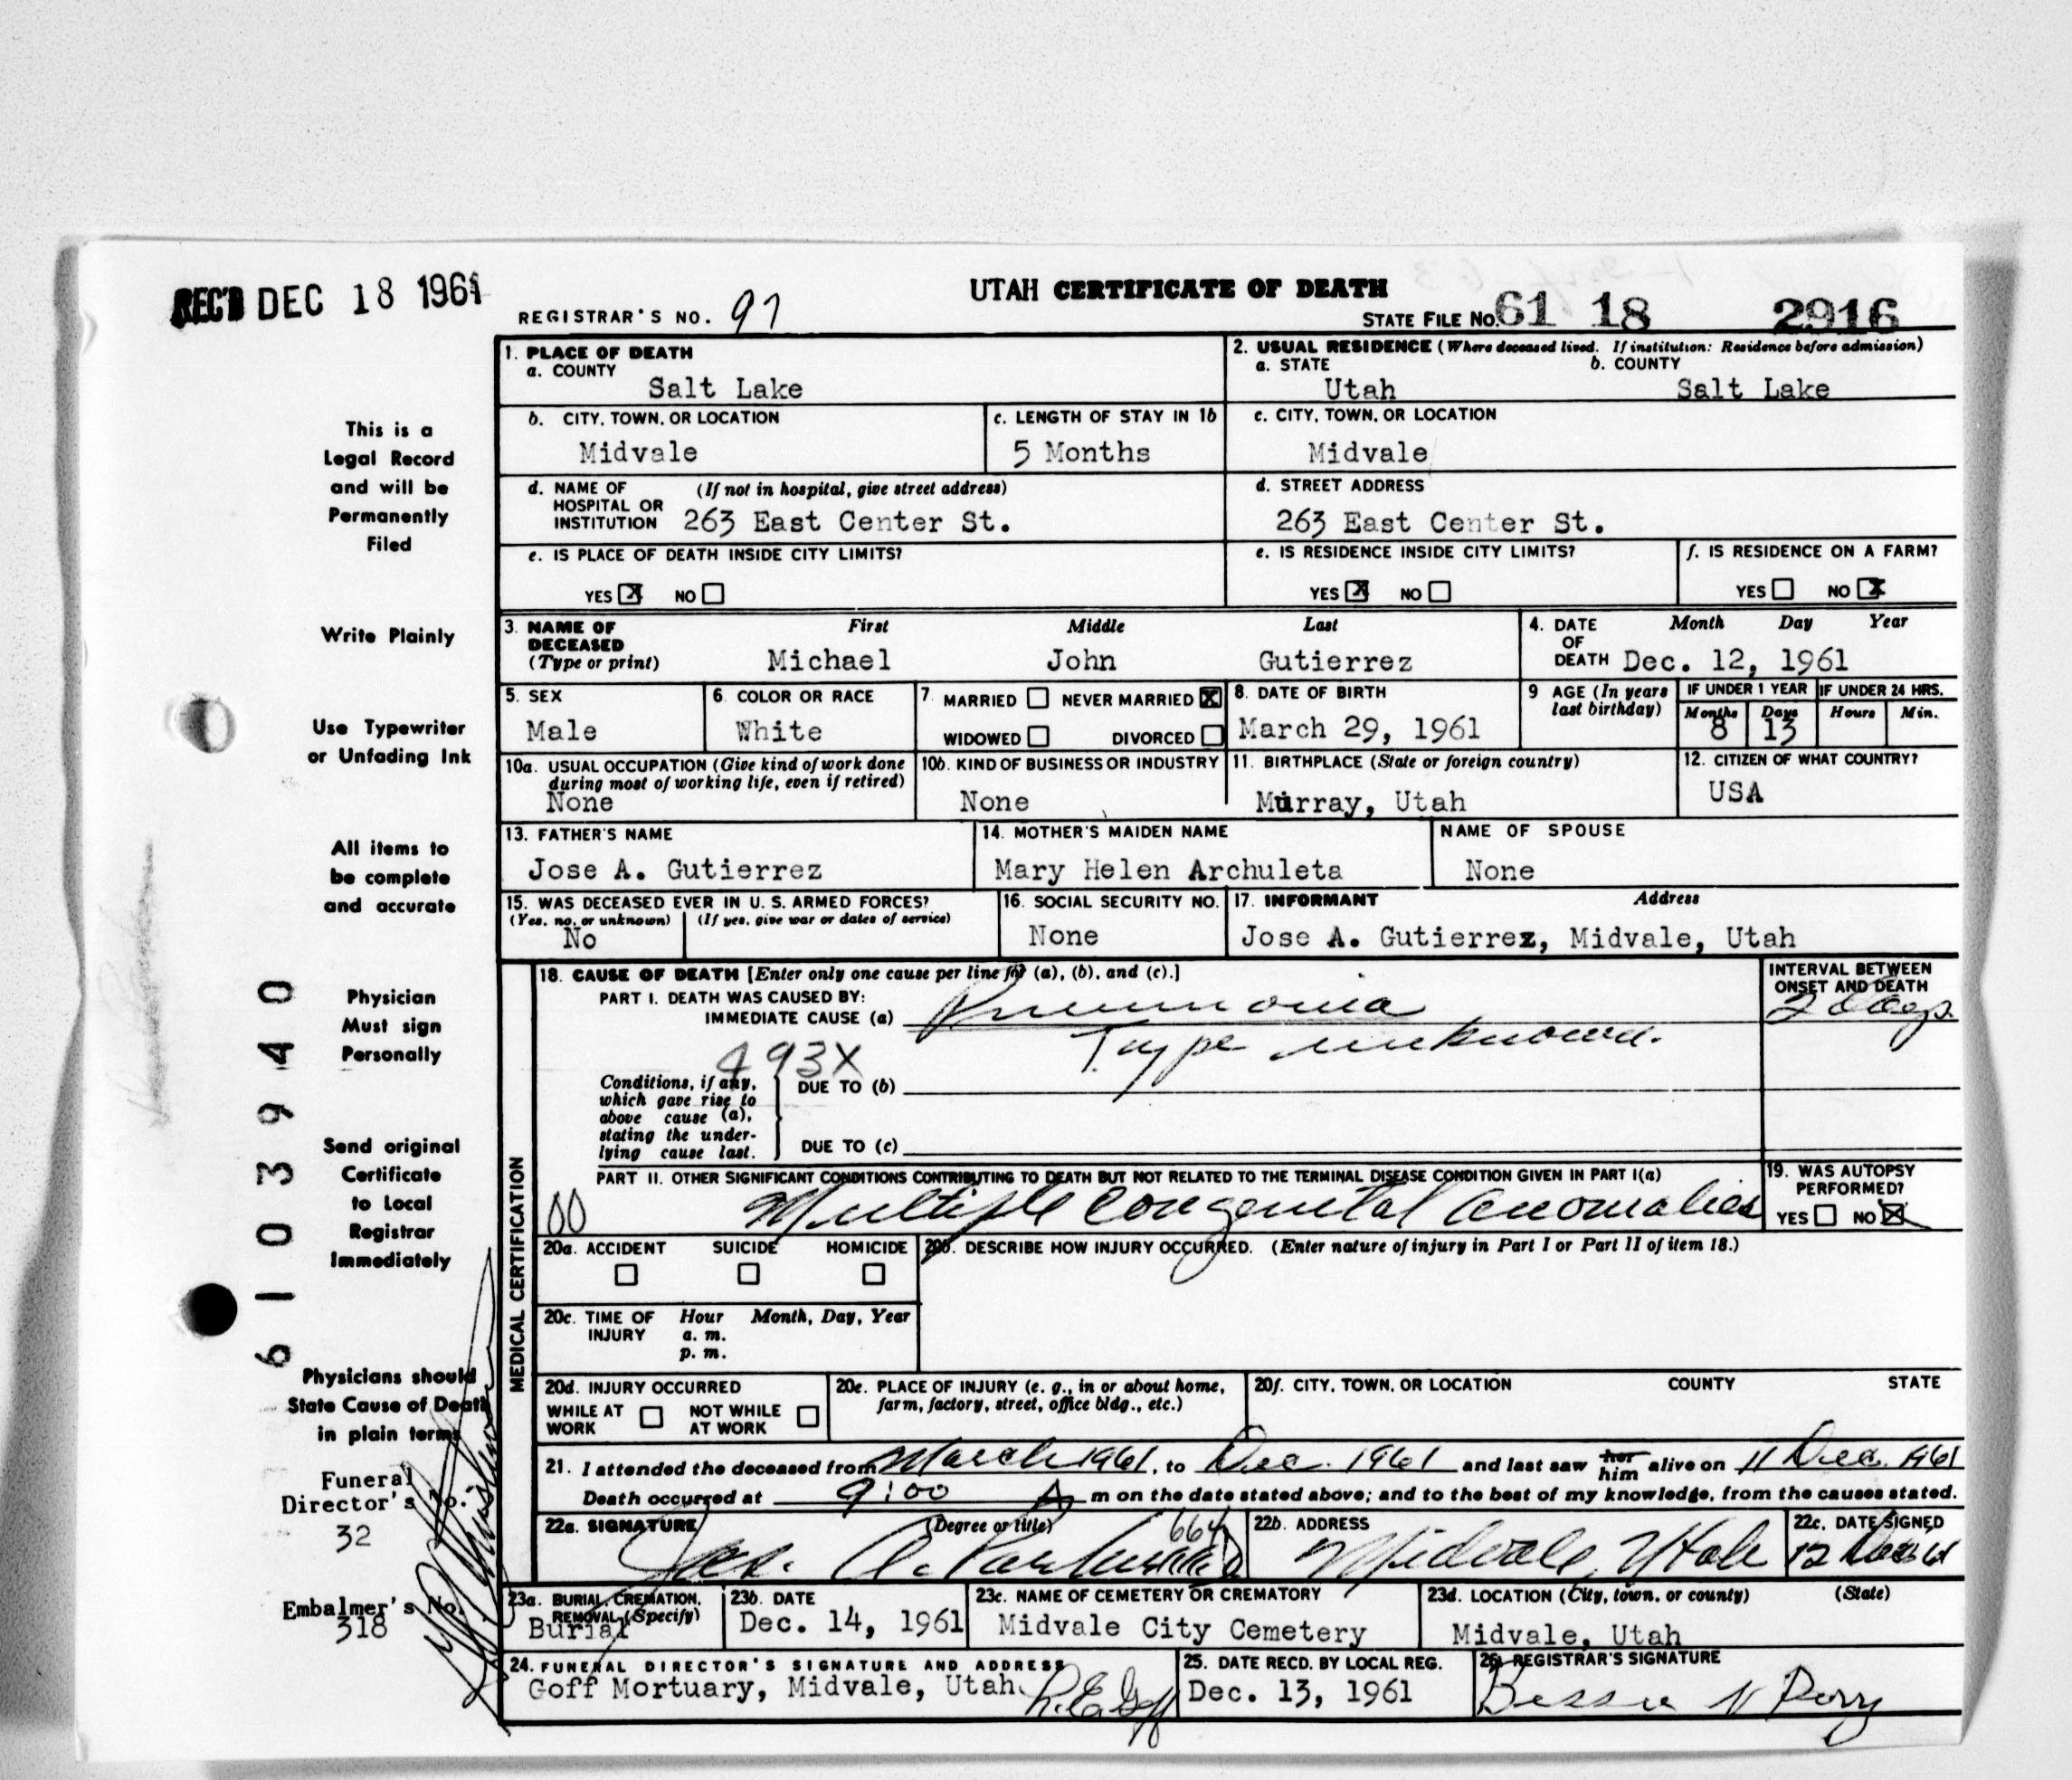 REC'D DEC 18 1961
UTAH CERTIFICATE OF DEATH
REGISTRAR'S NO. 97
STATE FILE NO. 61 18 2916
1. PLACE OF DEATH
a. COUNTY
Salt Lake
2. USUAL RESIDENCE (Where deceased lived. If institution: Residence before admission)
a. STATE b. COUNTY
Utah Salt Lake
b. CITY, TOWN, OR LOCATION
Midvale
c. LENGTH OF STAY IN 1b
5 Months
c. CITY, TOWN, OR LOCATION
Midvale
d. NAME OF (If not in hospital, give street address)
HOSPITAL OR
INSTITUTION 263 East Center St.
d. STREET ADDRESS
263 East Center St.
e. IS PLACE OF DEATH INSIDE CITY LIMITS?
YES X NO
e. IS RESIDENCE INSIDE CITY LIMITS?
YES X NO
f. IS RESIDENCE ON A FARM?
YES NO X
3. NAME OF First Middle Last
DECEASED
(Type or print) Michael John Gutierrez
4. DATE Month Day Year
OF
DEATH Dec. 12, 1961
5. SEX
Male
6. COLOR OR RACE
White
7. MARRIED NEVER MARRIED X
WIDOWED DIVORCED
8. DATE OF BIRTH
March 29, 1961
9 AGE (In years
last birthday)
IF UNDER 1 YEAR
Months Days
8 13
IF UNDER 24 HRS.
Hours Min.
10a. USUAL OCCUPATION (Give kind of work done
during most of working life, even if retired)
None
10b. KIND OF BUSINESS OR INDUSTRY
None
11. BIRTHPLACE (State or foreign country)
Murray, Utah
12. CITIZEN OF WHAT COUNTRY?
USA
13. FATHER'S NAME
Jose A. Gutierrez
14. MOTHER'S MAIDEN NAME
Mary Helen Archuleta
NAME OF SPOUSE
None
15. WAS DECEASED EVER IN U. S. ARMED FORCES?
(Yes, no, or unknown) (If yes, give war or dates of service)
No
16. SOCIAL SECURITY NO.
None
17. INFORMANT Address
Jose A. Gutierrez, Midvale, Utah
MEDICAL CERTIFICATION
18. CAUSE OF DEATH [Enter only one cause per line for (a), (b), and (c).]
PART I. DEATH WAS CAUSED BY:
IMMEDIATE CAUSE (a) Pneumonia
Type unknown.
INTERVAL BETWEEN
ONSET AND DEATH
2 days.
493X
Conditions, if any,
which gave rise to
above cause (a),
stating the under-
lying cause last.
DUE TO (b)
DUE TO (c)
PART II. OTHER SIGNIFICANT CONDITIONS CONTRIBUTING TO DEATH BUT NOT RELATED TO THE TERMINAL DISEASE CONDITION GIVEN IN PART I(a)
00 Multiple congenital anomalies
19. WAS AUTOPSY
PERFORMED?
YES NO X
20a. ACCIDENT SUICIDE HOMICIDE
20b. DESCRIBE HOW INJURY OCCURRED. (Enter nature of injury in Part I or Part II of item 18.)
20c. TIME OF Hour Month, Day, Year
INJURY a. m.
p. m.
20d. INJURY OCCURRED
WHILE AT NOT WHILE
WORK AT WORK
20e. PLACE OF INJURY (e. g., in or about home,
farm, factory, street, office bldg., etc.)
20f. CITY, TOWN, OR LOCATION COUNTY STATE
21. I attended the deceased from March 1961, to Dec. 1961 and last saw her him alive on 11 Dec. 1961
Death occurred at 9:00 A m on the date stated above; and to the best of my knowledge, from the causes stated.
22a. SIGNATURE (Degree or title)
664
22b. ADDRESS
Midvale, Utah
22c. DATE SIGNED
12 Dec 61
23a. BURIAL, CREMATION,
REMOVAL (Specify)
Burial
23b. DATE
Dec. 14, 1961
23c. NAME OF CEMETERY OR CREMATORY
Midvale City Cemetery
23d. LOCATION (City, town, or county) (State)
Midvale, Utah
24. FUNERAL DIRECTOR'S SIGNATURE AND ADDRESS
Goff Mortuary, Midvale, Utah. R.E. Goff
25. DATE RECD. BY LOCAL REG.
Dec. 13, 1961
26. REGISTRAR'S SIGNATURE
Bessie N Perry
This is a
Legal Record
and will be
Permanently
Filed
Write Plainly
Use Typewriter
or Unfading Ink
All items to
be complete
and accurate
Physician
Must sign
Personally
Send original
Certificate
to Local
Registrar
Immediately
Physicians should
State Cause of Death
in plain terms
Funeral
Director's No.
32
Embalmer's No.
318
6103940